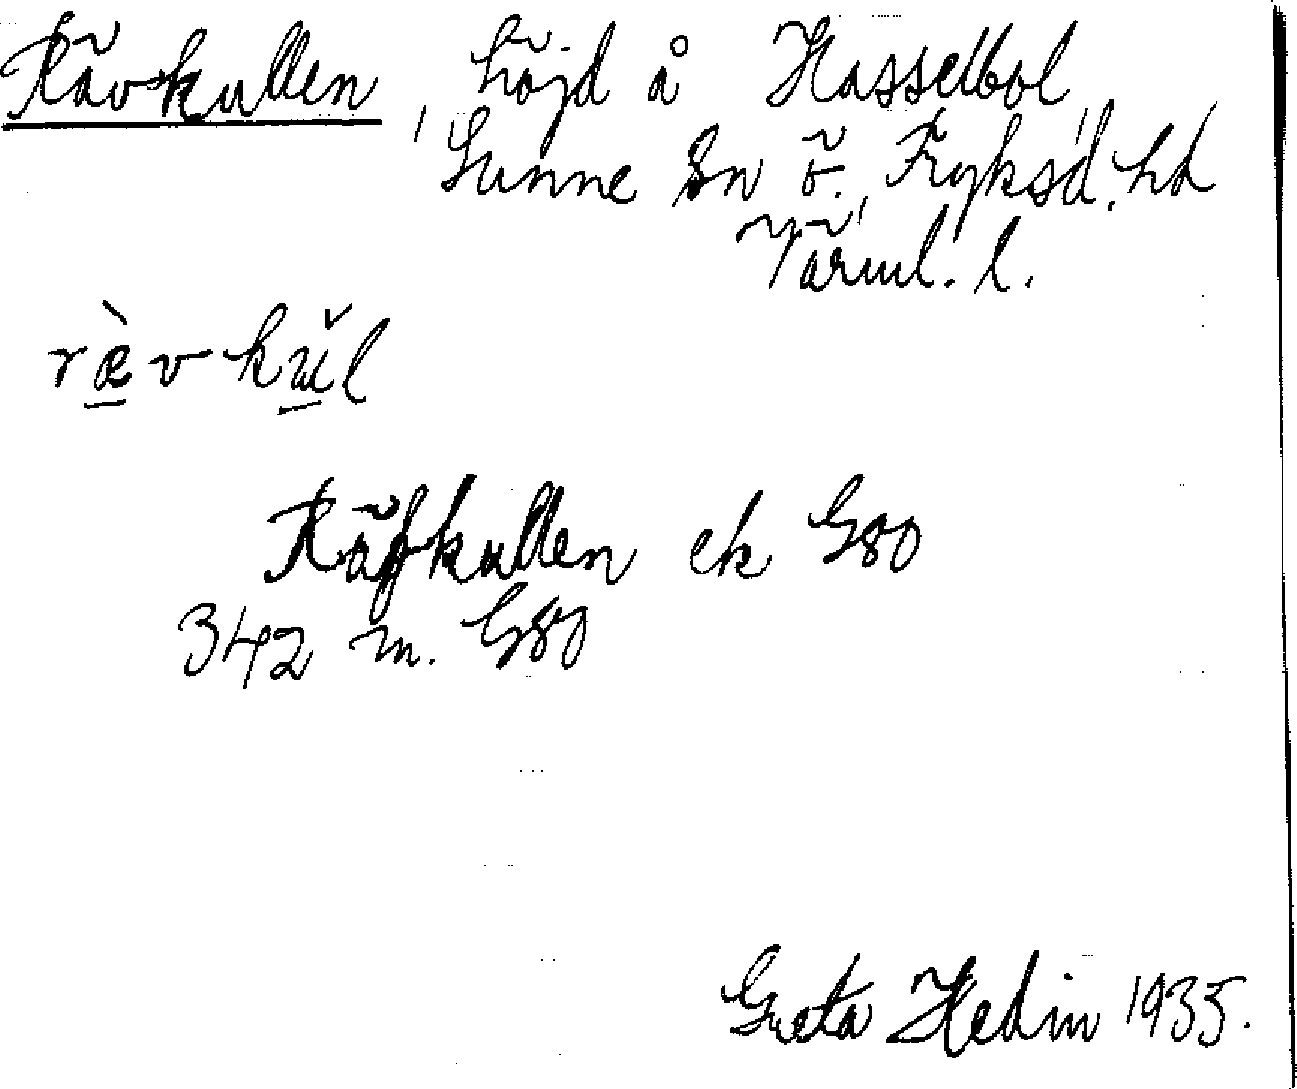 Rävkullen, höjd å Hasselbol,
Sunne sn Ö. Fryksd. hd,
Värml. l.
ræ̀vkŭl
Räfkullen ek G80
342 m. G80
Greta Hedin 1935.